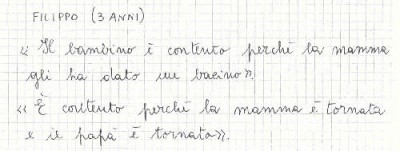 FILIPPO (3 ANNI)
« Il bambino è contento perché la mamma
gli ha dato un bacino».
«È contento perché la mamma è tornata
e il papà è tornato».